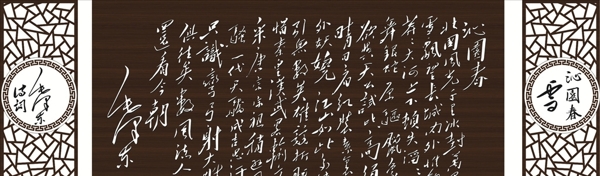 沁園春
雪
沁園春
北国风光千里冰封万里
雪飘望长城内外惟余
莽莽大河上下顿失滔
舞银蛇原驰蜡象
欲与天公试比高须
晴日看红装素裹
外妖娆江山如此多
引无数英雄竞折腰
惜秦皇汉武略输
采唐宗宋祖稍逊风
骚一代天骄成吉思汗
只識弯弓射大雕
俱往矣数风流人
還看今朝
毛澤東
毛澤東
诗词